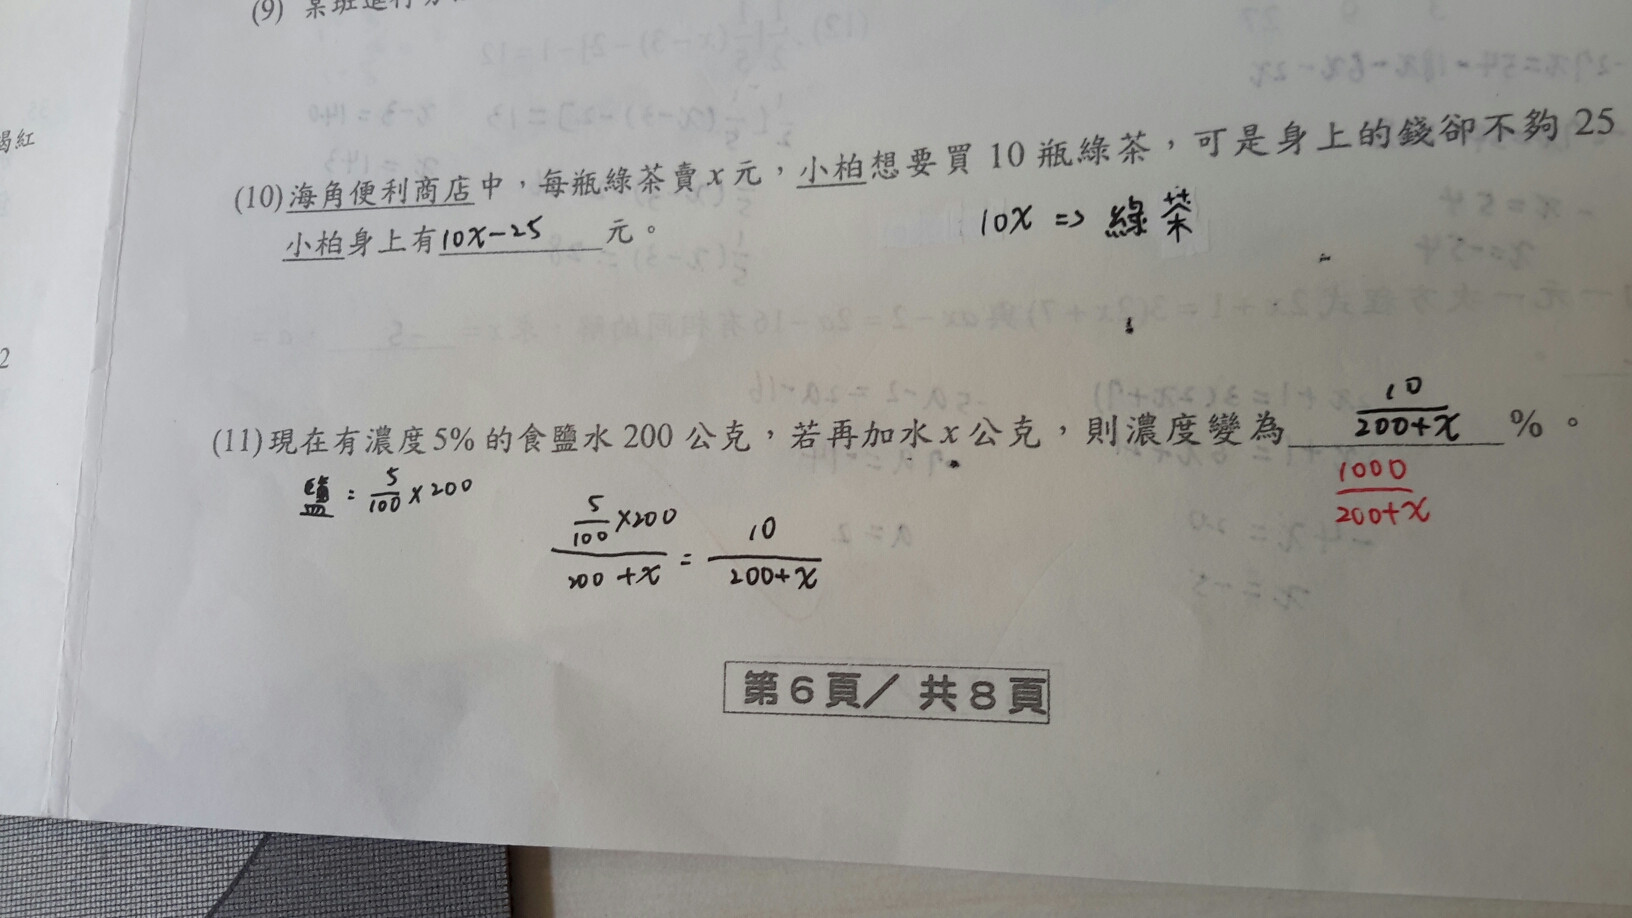 (9) 某班進行分
(10) 海角便利商店中，每瓶綠茶賣 x 元，小柏想要買 10 瓶綠茶，可是身上的錢卻不夠 25
小柏身上有 10x-25 元。
10x => 綠茶
(11) 現在有濃度 5% 的食鹽水 200 公克，若再加水 x 公克，則濃度變為 10/(200+x) %。
1000/(200+x)
鹽 : 5/100 × 200
(5/100 ×200)/(200 +x) = 10/(200+x)
第 6 頁／ 共 8 頁
褐紅
2